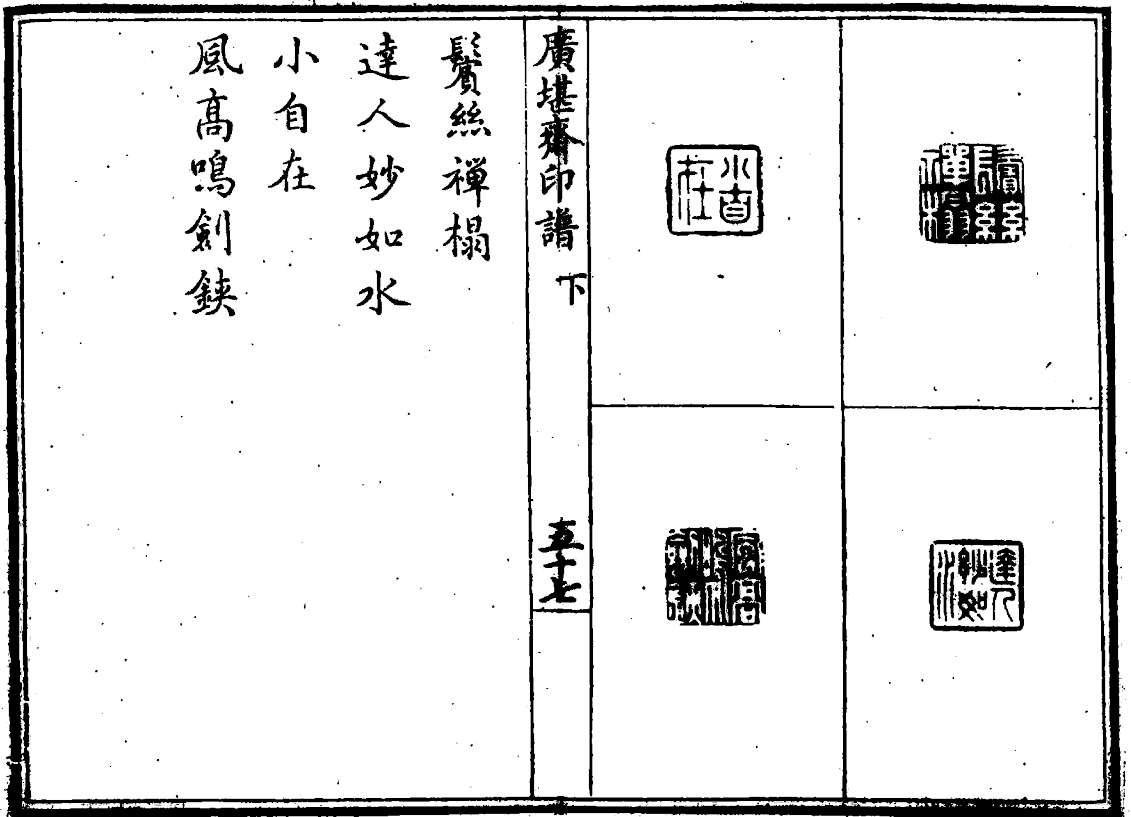 鬢絲
禪榻
達人
妙如
水
小自
在
風高
鳴
劍鋏
廣堪齋印譜 下
五十七
鬢絲禪榻
達人妙如水
小自在
風高鳴劍鋏